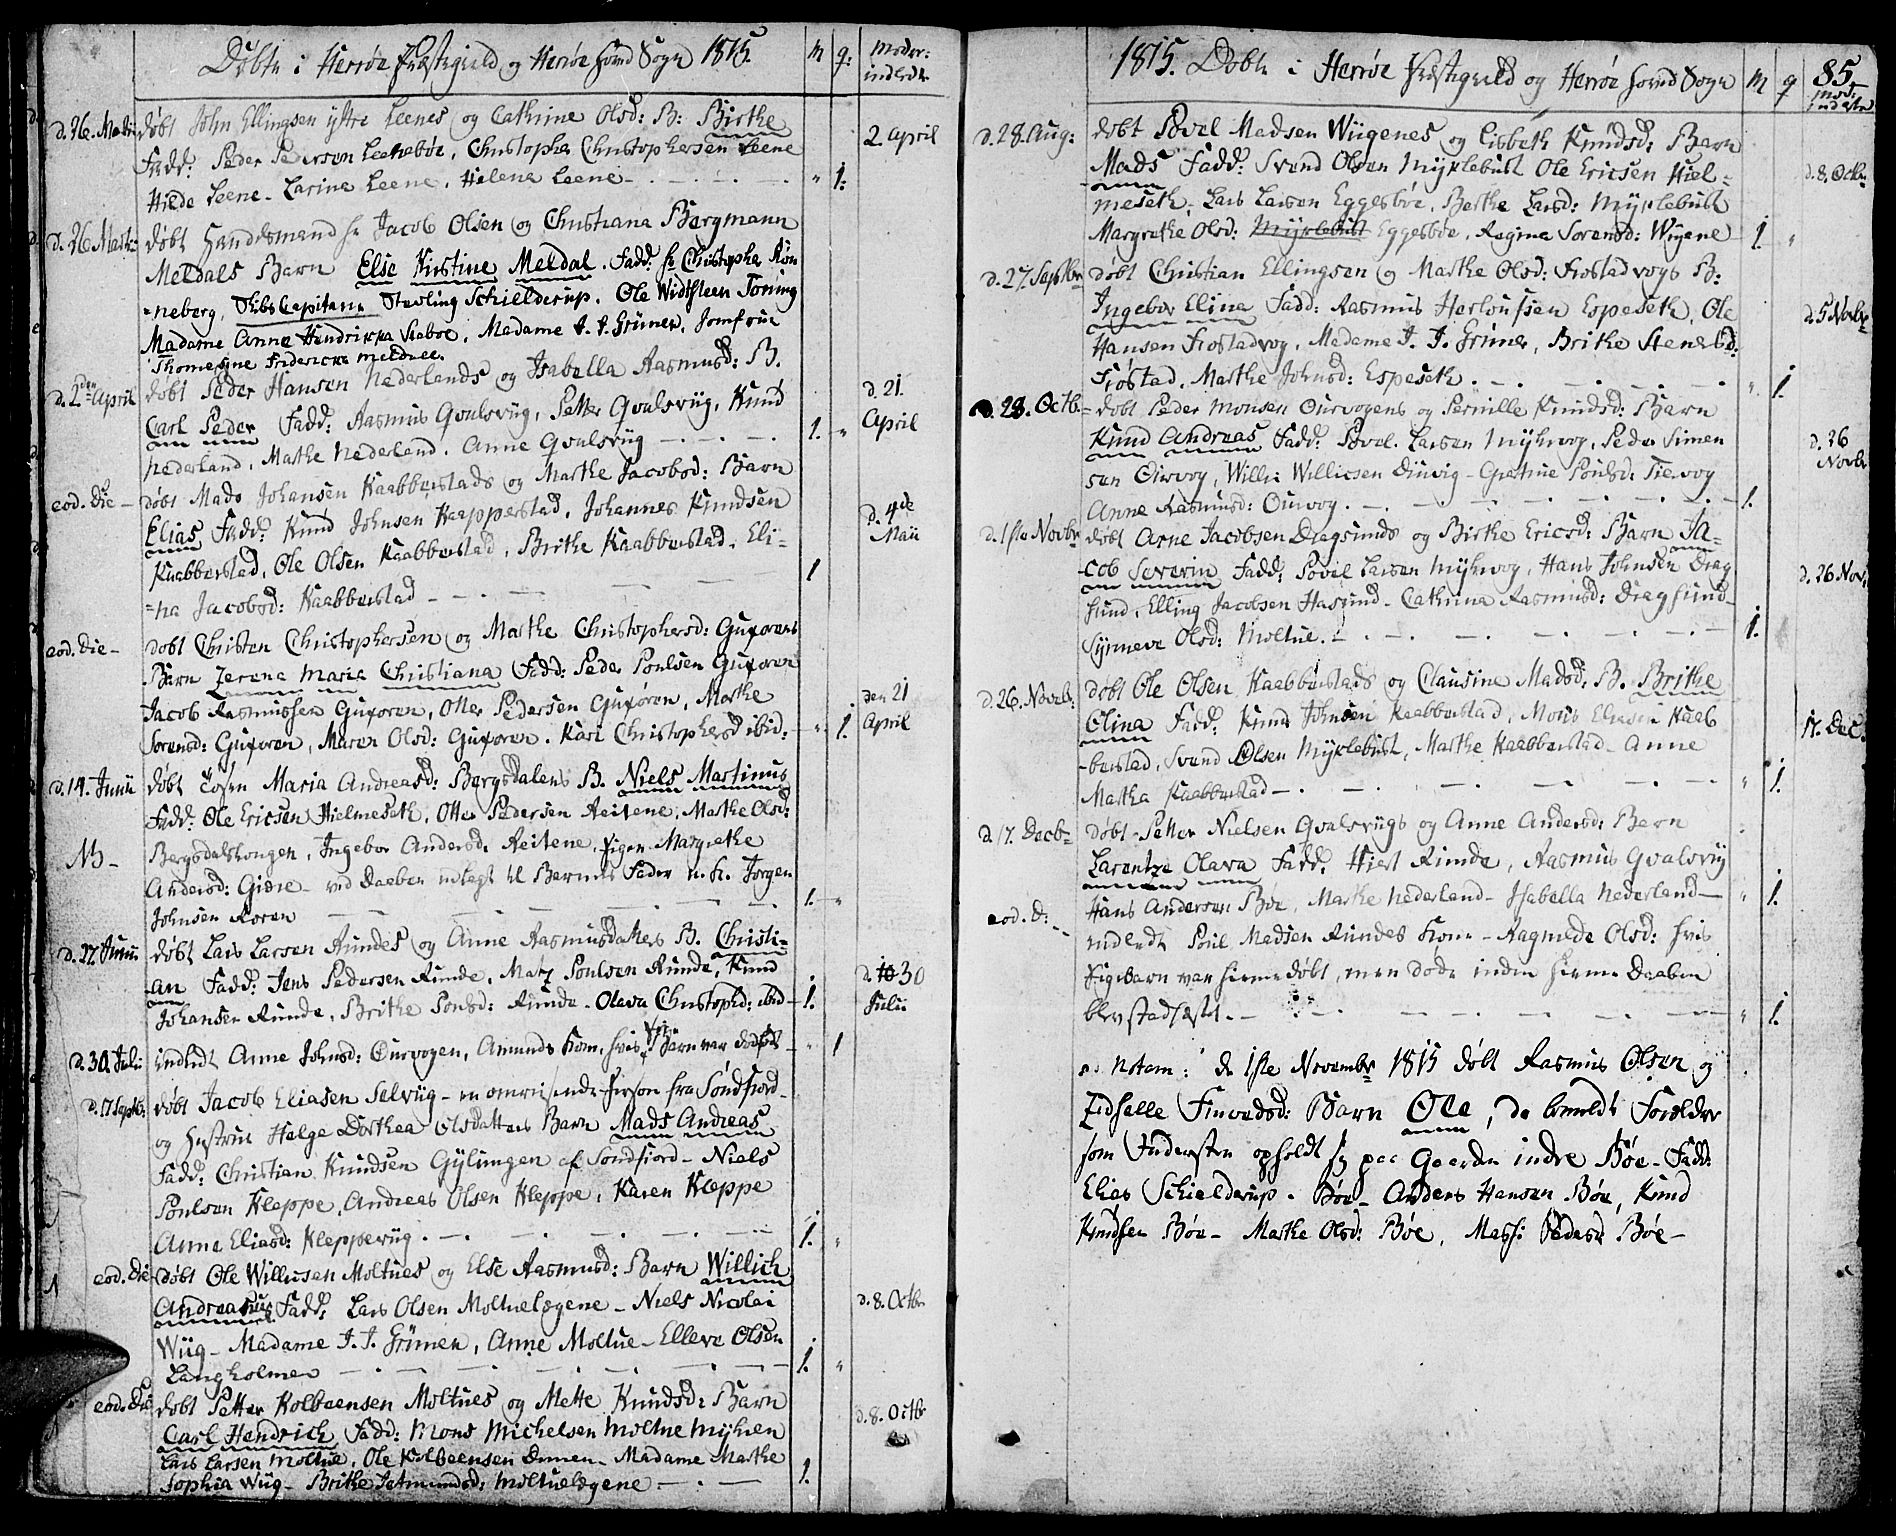 Døbte i Herrøe Præstegield og Herrøe hoved Sogn 1815. M q: Moder: indledn
d. 26. Martii døbt John Ellingsen yttre Leenes og Cathrine Olsd: B: Birthe 2. April
Fadd: Peder Pedersen Leenebøe, Christopher Christophersen Leene
Hilde Leene - Larine Leene, Helene Leene - " 1.
d. 26 Martii døbt Handelsmand hr Jacob Olsen og Christiana Bergmann
Meldals Barn Else Kirstine Meldal. Fadd: hr Christopher Røn
=neberg, Skibs Capitain Staaling Schielderup, Ole Widtsteen Toning
Madame Anne Hendrikka Aaboe, Madame I. I. Grüner, Jomfrue
Thomasine Fridericke Meldal.
d. 2den April døbt Peder Hansen Nederlands og Isabella Rasmusd: B. d. 21.
Carl Peder Fadd: Rasmus Qvalsviig, Petter Qvalsviig, Knud April
Nederland, Marthe Nederland. Anne Qvalsviig 1. "
eod. Die - døbt Mads Johansen Kaabbestads og Marthe Jacobsd: Barn
Elias Fadd: Knud Johnsen Kaapperstad, Johannes Knudsen d. 4de Maii
Kaabberstad, Ole Olsen Kaabberstad, Brithe Kaabberstad, Eli- 1
=na Jacobsd: Kaabberstad
eod. die - døbt Christen Christophersen og Marthe Christophersd: Gurørens
Barn Zerena Maria Christiana Fadd: Peder Poulsen Gurøren
Jacob Rasmussen Gurøren, Otter Pedersen Gurøren, Marthe den 21
Sørensd: Gurøren, Maren Olsd: Gurøren. Kari Christophersd ibid: " 1. April
d. 14. Junii døbt Maria Andreasd: Bergsdalens B. Niels Martinus
Fadd: Ole Ericsen Hielmeseth, Otter Pedersen Reitene, Marthe Olsd:
NB - Bergsdalshougen, Ingebor Andersd: Reitene, Pigen Margrethe
Andersd: Gidre - ved Daaben udlagt til Barnets Fader u. k. Jørgen
Johnsen Roren 1. "
d. 27. Junii døbt Lars Larsen Rundes og Anne Rasmusdatters B. Christi-
-an Fadd: Jens Pedersen Runde, Matz Poulsen Runde, Knud d. 30
Johansen Runde, Brithe Poulsd: Runde - Olava Christophd: ibid 1. Julii
d. 30. Juli: indledt Anne Johnsd: Ourvogen, Amunds Kone, hvis Barn var dødfødt " 1
d. 17 Septb: døbt Jacob Eliasen Selviig - en omreisende Person fra Søndfiord
og Hustrue Helge Dorthea Olsdatters Barn Mads Andreas
Fadd: Christian Knudsen Gylingen af Søndfiord - Niels
Poulsen Kleppe, Andreas Olsen Kleppe, Karen Kleppe
Anne Eliasd: Kleppeviig 1. "
eod. Die døbt Ole Willusen Moltues og Else Rasmusd: Barn Willich
Andreas Fadd: Lars Olsen Moltuelægene - Niels Nicolai d. 8. Octbr
Wiig - Madame I. I. Grüner, Anne Moltue - Elleve Olsen
Langholmen 1. "
eod. Die døbt Petter Kolbeensen Moltues og Mette Knudsd: Barn
Carl Hendrich Fadd: Mons Michelsen Moltue Myhren d. 8. Octbr
Lars Larsen Moltue, Ole Kolbeensen Dimen - Madame Marthe
Sophia Wiig - Brithe Jetmundsd: Moltuelægene 1.
1815. Døbte i Herrøe Præstegield og Herrøe hoved Sogn M q 85 mod: indledn
d. 28. Aug: døbt Povel Madsen Wiigenes og Lisbeth Knudsd: Barn
Mads Fadd: Svend Olsen Myklebust Ole Ericsen Hiel= d. 8. Octbr
meseth, Lars Larsen Eggesbøe, Berthe Larsd: Myklebust
Margrethe Olsd: Myklebust Eggesbøe, Ragna Sørensd: Wigene 1. "
d. 27. Septbr døbt Christian Ellingsen og Marthe Olsd: Frøstadvogs B:
Ingebor Elina Fadd: Rasmus Herlousen Espeseth, Ole d. 5 Novbr
Hansen Frøstadvog, Madame I. I. Grüner, Brithe Stenesd:
Frøstad, Marthe Johnsd: Espeseth. " 1.
d. 28. Octb: døbt Peder Monsen Ourvogens og Pernille Knudsd: Barn
Knud Andreas, Fadd: Povel Larsen Myhrvog, Peder Simen d. 26
sen Ourvog, Willu Willicsen Dimvig - Grethe Poulsd: Tiervog Novbr
Anne Rasmusd: Ourvog. 1.
d. 1ste Novbr døbt Arne Jacobsen Dragsunds og Birthe Ericsd: Barn Ja-
-cob Severin Fadd: Povel Larsen Myhrvog, Hans Johnsen Drag d. 26 Nov:
sund, Elling Jacobsen Hasund - Cathrina Rasmusd: Dragsund
Synneve Olsd: Moltue. 1.
d. 26. Novb: døbt Ole Olsen Kaabberstads og Clausine Madsd: B. Brithe
Elina Fadd: Knud Johnsen Kaabberstad, Mons Kaab 17. Dec.
-berstad, Svend Olsen Myklebust, Marthe Kaabberstad - Anne
Martha Kaabberstad " 1.
d. 17. Decb døbt Petter Nielsen Qvalsviigs og Anne Andersd: Barn
Larentze Olava Fadd: Runde, Rasmus Qvalsviig
Hans Andersen Bøe, Marthe Nederland - Isabella Nederland " 1.
eod. d: indledt Poul Madsen Rundes Kone - Ragnilde Olsd: hvis
Pige Barn var hiemmedøbt, men døde inden hiemme Daaben
blev stadfæstet. " 1.
Notam: d. 1ste Novembr 1815 døbt Rasmus Olsen og
Zidselle Finvedsd: Barn Ole, de bemeldte Forældre
som Inderster opholdt sig paa Gaarden indre Bøe - Fadd:
Elias Schielderup - Bøe - Anders Hansen Bøe, Knud
Knudsen Bøe - Marthe Olsd: Bøe, Pedersd Bøe -